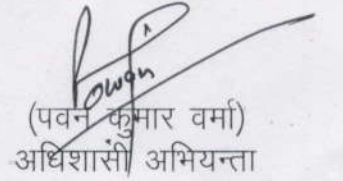 Powan
(पवन कुमार वर्मा)
अधिशासी अभियन्ता